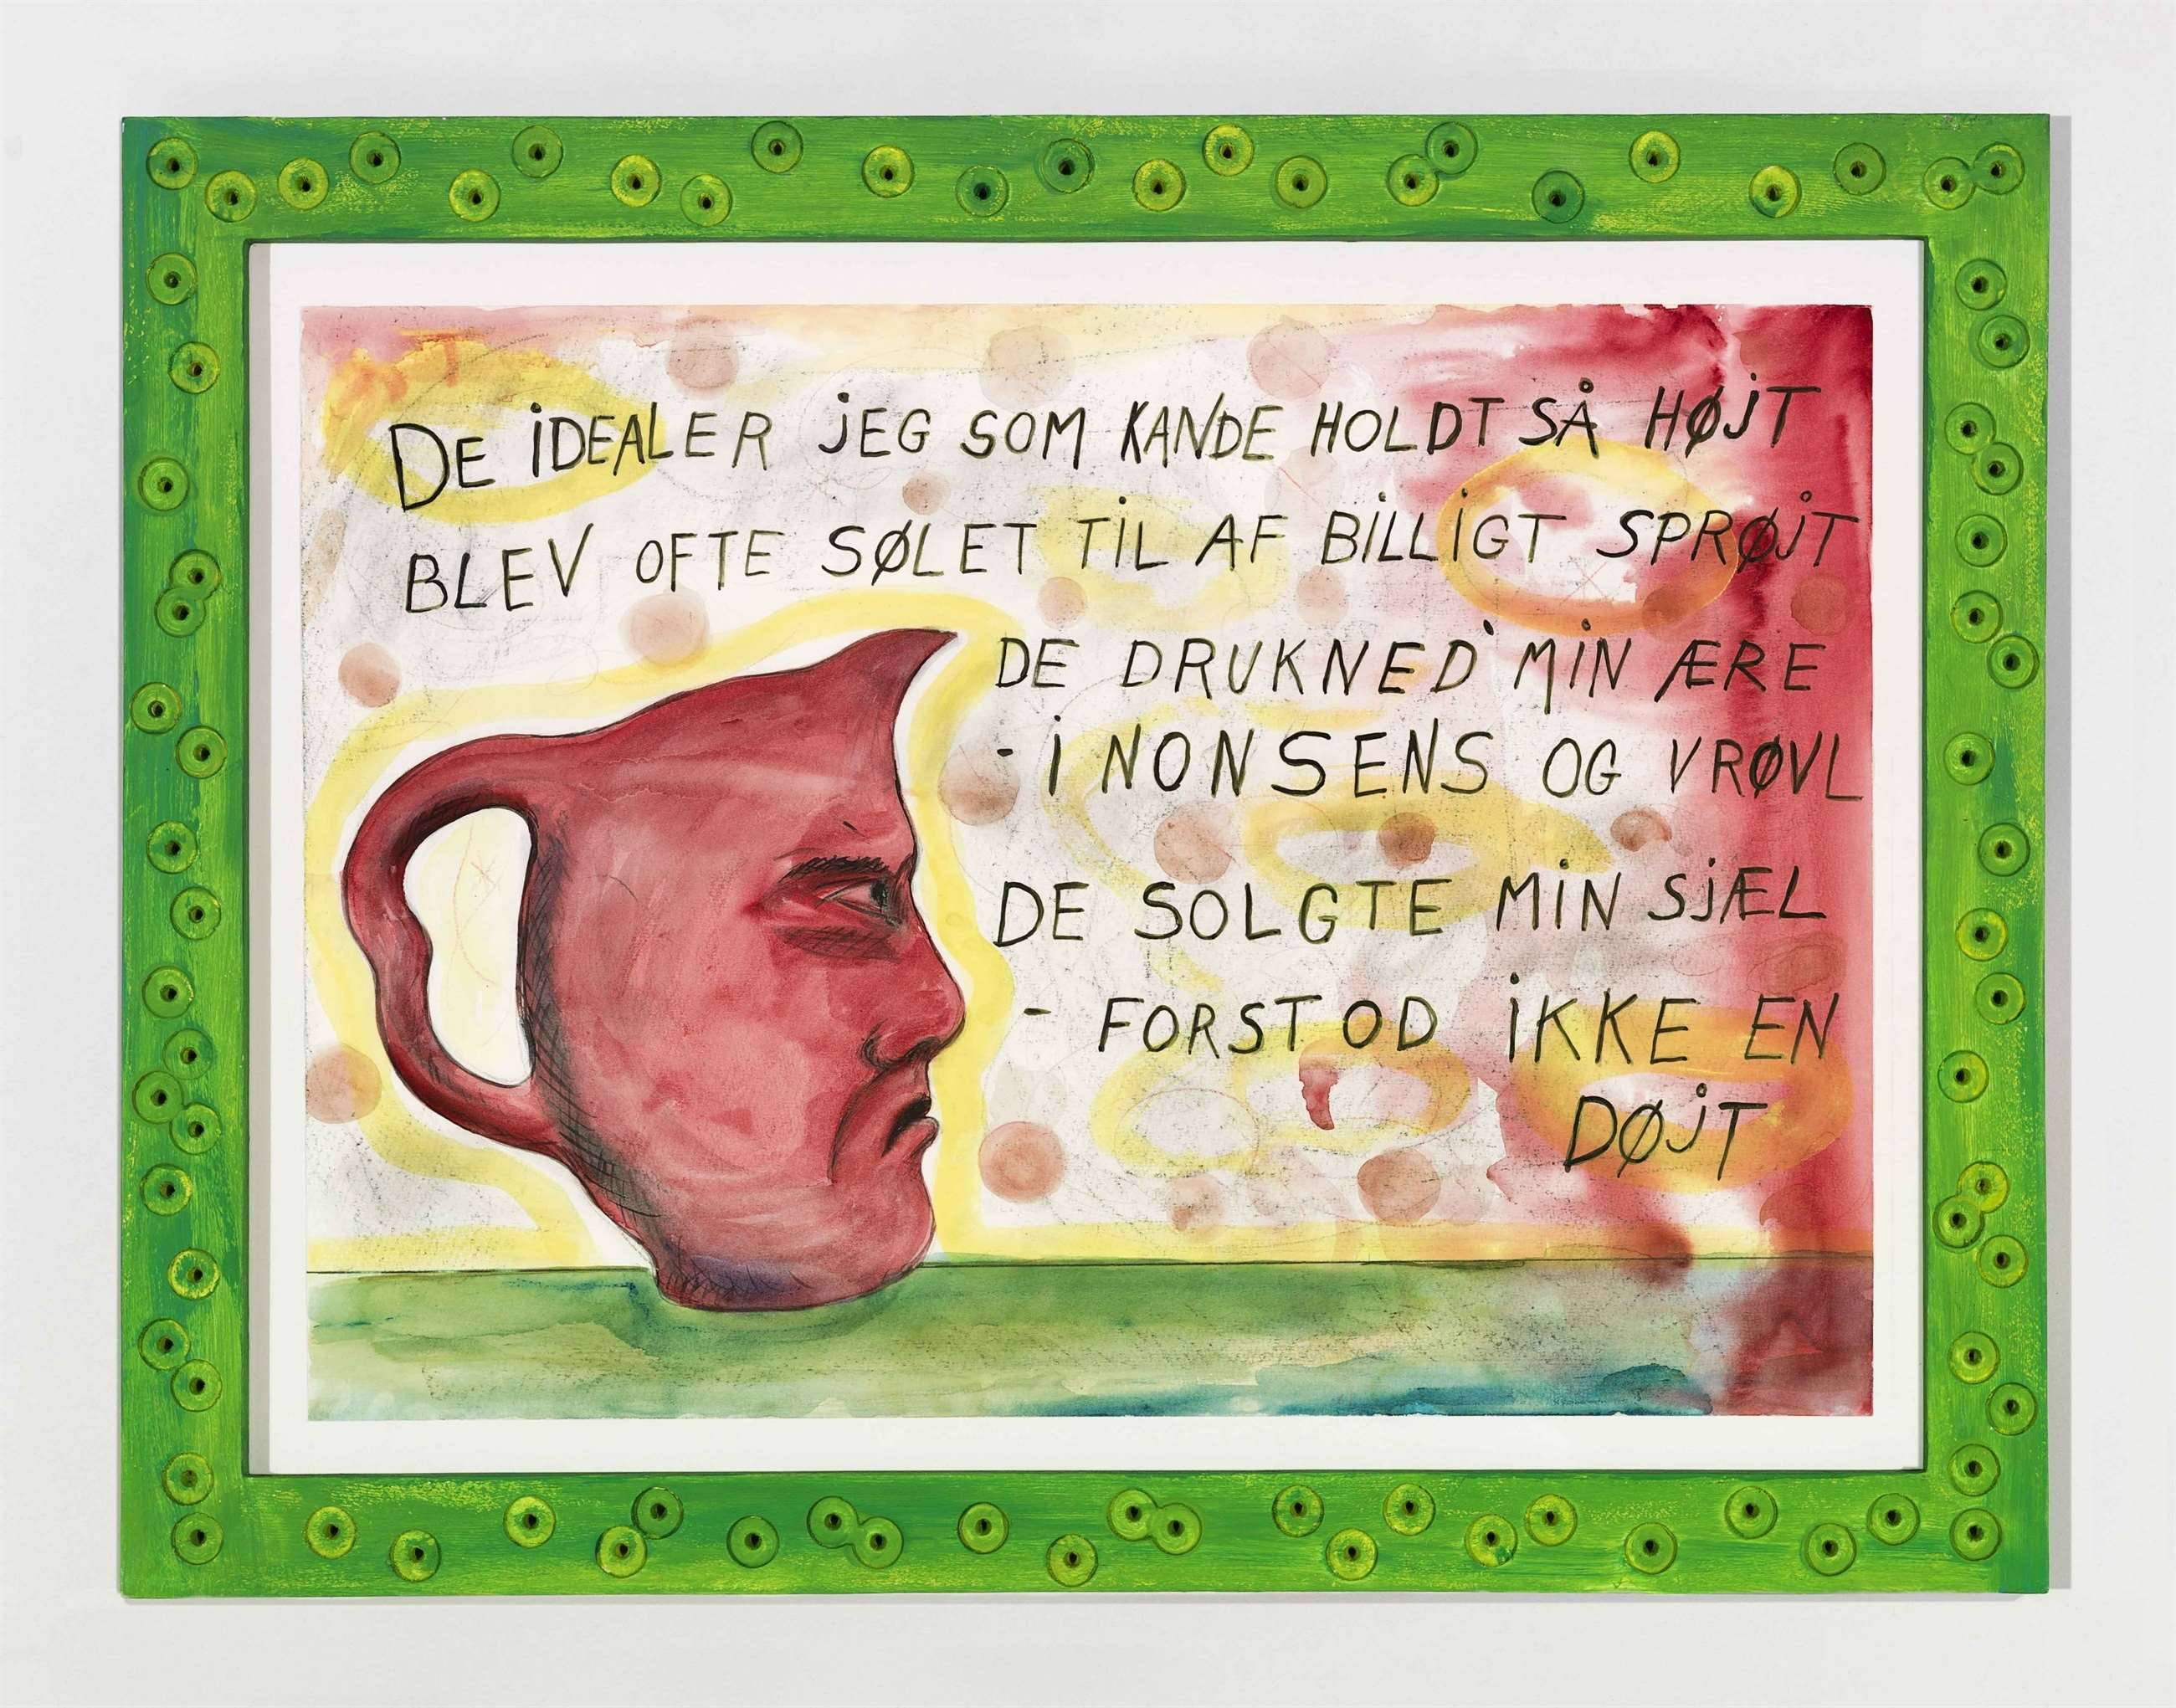 DE iDEALER jEG SOM KANDE HOLDT SÅ HØjT
BLEV OFTE SØLET TiL AF BiLLiGT SPRØjT
DE DRUKNED' MiN ÆRE
- i NONSENS OG VRØVL
DE SOLGTE MiN SjÆL
- FORSTOD iKKE EN
DØjT